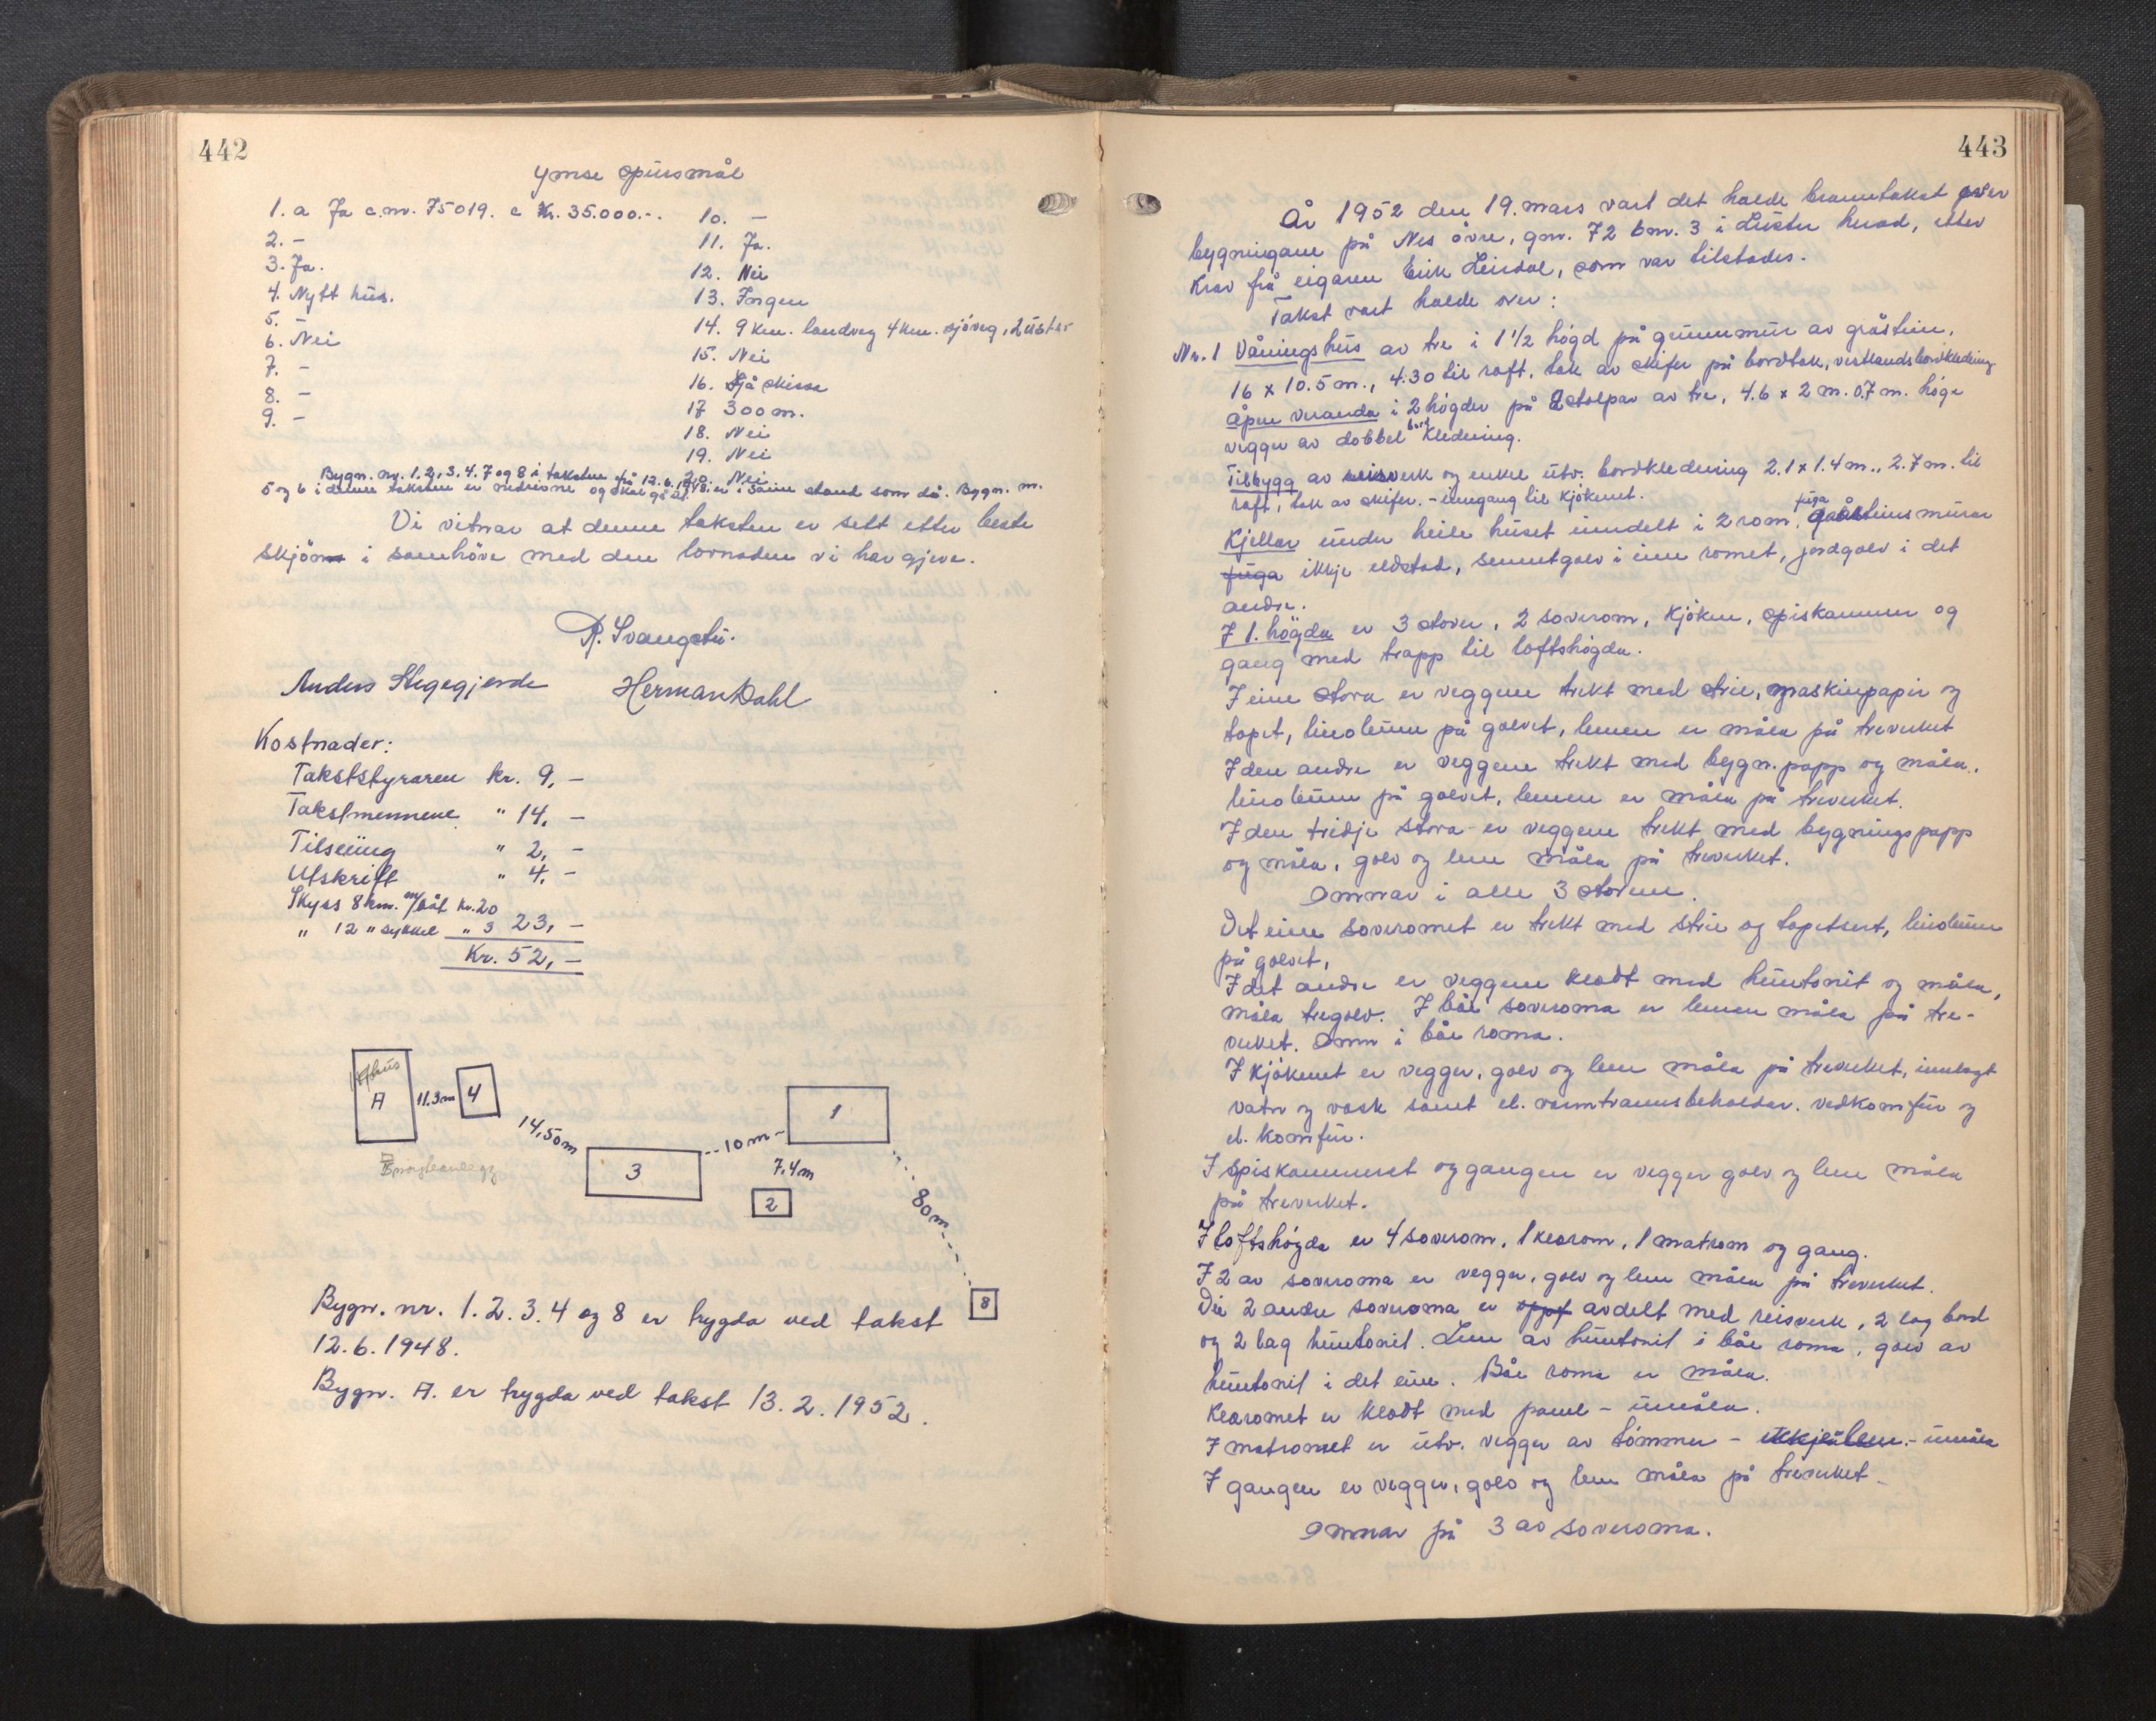 442
Ymse spursmål
1. a Ja c.nr. 75019. c Kr. 35.000.-.
2. -
3. Ja.
4. Nytt hus.
5. -
6. Nei
7. -
8. -
9. -
10. -
11. Ja.
12. Nei
13. Ingen
14. 9 km. landveg 4 km. sjöveg, Luster
15. Nei
16. Sjå skissa
17 300 m.
18. Nei
19. Nei
20. Nei
Bygn. nr. 1, 2, 3, 4, 7 og 8 i taksten frå 12.6.1948. er i same stand som då. Bygn. nr.
5 og 6 i denne taksten er nedrivne og skal gå ut.
Vi vitnar at denne taksten er sett etter beste
skjön i samhöve med den lovnaden vi har gjeve.
R. Svangstu.
Anders Stegegjerde Herman Dahl
Kostnader:
Takststyraren kr. 9,-
Takstmennene " 14,-
Tilsening " 2,-
Utskrift " 4,-
Skyss 8 km. m/båt kr. 20
" 12 " sykkel " 3 23,-
Kr. 52,-
Uthus
A
11.3m
4
14,50m
3
10m
1
7,4m
2
80m
8
Bygn. nr. 1. 2. 3. 4 og 8 er trygda ved takst
12.6.1948.
Bygn. A. er trygda ved takst 13.2.1952.
443
År 1952 den 19. mars vart det halde branntakst over
bygningane på Nes övre, gnr. 72 bnr. 3 i Luster herad, etter
Krav frå eigaren Eirik Leirdal, som var tilstades.
Takst vart halde over:
Nr. 1 Våningshus av tre i 1 1/2 högd på grunnmur av gråstein,
16 x 10.5 m., 4.30 til raft, tak av skifer på bordtak, vestlandsbordkledning
Åpen veranda i 2 högder på 2 stolpar av tre, 4.6 x 2 m. 0.7 m. höge
vegger av dobbel bord kledning.
Tilbygg av reisverk og enkel utv. bordkledning 2.1 x 1.4 m., 2.7 m. til
raft, tak av skifer. - inngang til kjökenet.
Kjellar under heile huset inndelt i 2 rom, fuga gråsteinsmurar
fuga ikkje eldstad, sementgolv i eine romet, jordgolv i det
andre.
I 1. högda er 3 stover, 2 soverom, kjöken, spiskammer og
gang med trapp til loftshögda.
I eine stova er veggene trekt med strie, maskinpapir og
tapet, linoleum på golvet, lemen er måla på treverket
I den andre er veggene trekt med bygn. papp og måla,
linoleum på golvet, lemen er måla på treverket.
I den tridje stova er veggene trekt med bygningspapp
og måla, golv og lem måla på treverket.
Omnar i alle 3 stovene.
Det eine soveromet er trekt med strie og tapetsert, linoleum
på golvet,
I det andre er veggene kledt med huntonit og måla,
måla tregolv. I båe soveroma er lemen måla på tre-
verket. Omn i båe roma.
I kjökenet er vegger, golv og lem måla på treverket, innlagt
vatn og vask samt el. varmtvannsbeholdar. vedkomfur og
el. komfur.
I spiskammerset og gangen er vegger golv og lem måla
på treverket.
I loftshögda er 4 soverom, 1 klærom, 1 matrom og gang.
I 2 av soveroma er vegger, golv og lem måla på treverket.
Dei 2 andre soveroma er oppt avdelt med reisverk, 2 lag bord
og 2 lag huntonit. Lem av huntonit i båe roma, golv av
huntonit i det eine. Båe roma er måla.
Klæromet er kledt med panel - umåla.
I matromet er utv. vegger av tömmer - - umåla
I gangen er vegger, golv og lem måla på treverket.
Omnar på 3 av soveroma.